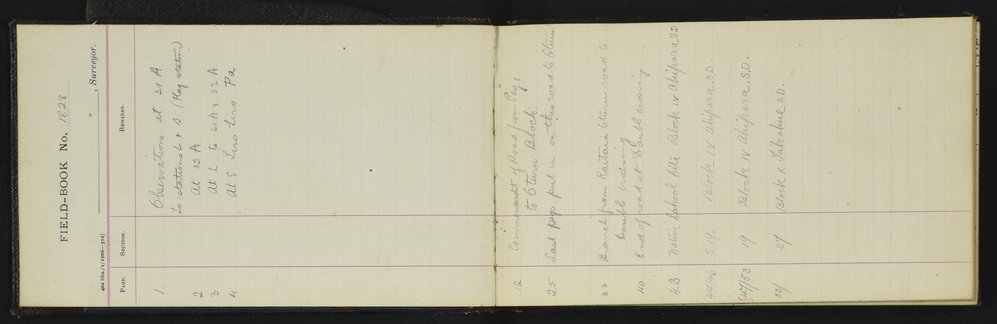 FIELD-BOOK No. 1828
, Surveyor.
400 bks./1/1906—324]
PAGE. SECTION. REMARKS.
1. Observations at 31 A
to stations L & S (Flag station)
2 At 32 A
3 At L to 31 A & 32 A
4 At S
12 Commencement of Road from Peg 1
to Oturu Block.
25 Last pegs put in on this road to Oturu
33 Branch from Kaitaia Oturu road to
Double crossing
40 End of road at Double crossing
43 Native School Site Block IV Ahipara SD
Block IV Ahipara SD
47/53 19 Block IV Ahipara S.D.
55/ 27 Block X Takahue S.D.